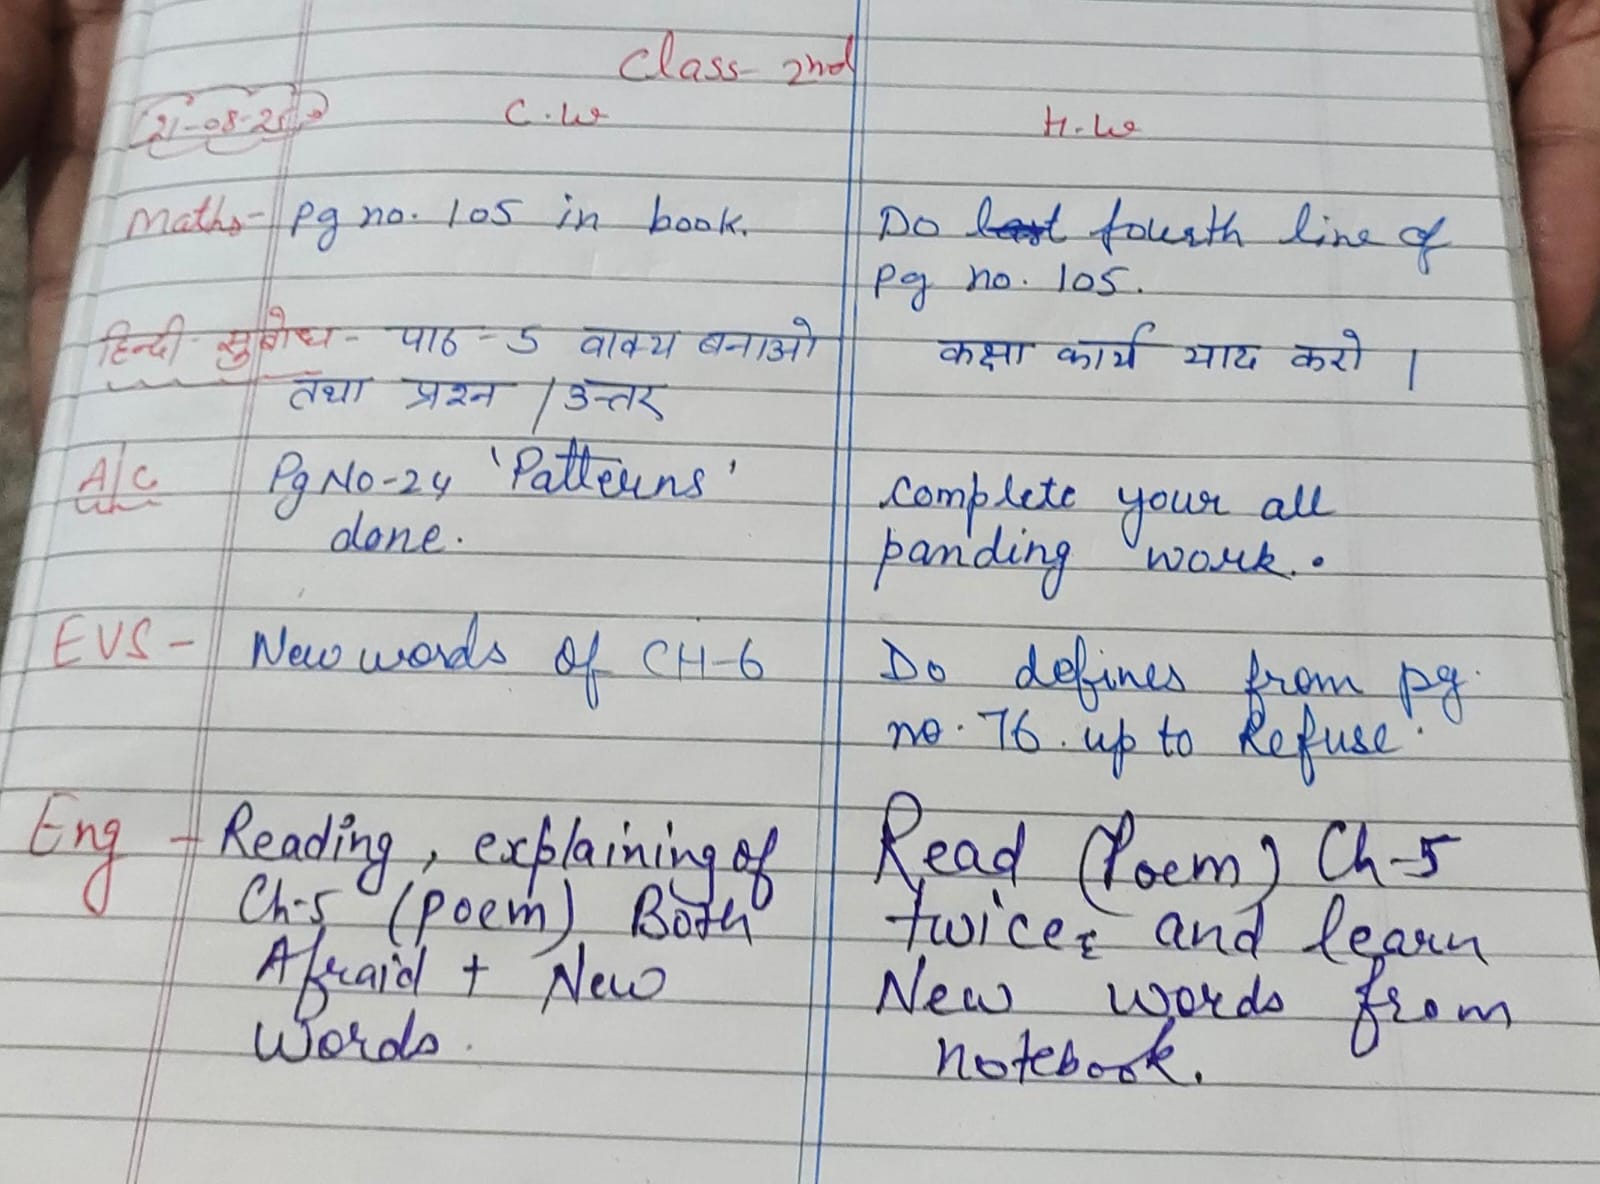 Class- 2nd
21-08-25 C.W H.W
Maths- Pg no. 105 in book. Do fourth line of
Pg no. 105.
हिन्दी सुबोध- पाठ - 5 वाक्य बनाओ कक्षा कार्य याद करो ।
तथा प्रश्न / उत्तर
A/C Pg No-24 'Patterns' Complete your all
done. panding work.
EVS- New words of CH-6 Do defines from pg.
no. 76. up to Refuse.
Eng - Reading, explaining of Read (Poem) Ch-5
Ch-5 (poem) Both twice and learn
Afraid + New New words from
Words. notebook.